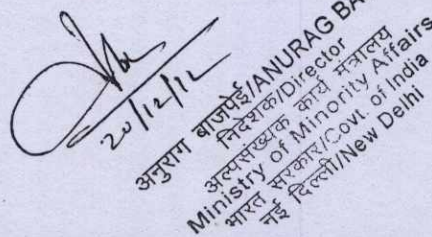 20/12/12
अनुराग बाजपेई/ANURAG BA
निदेशक/Director
अल्पसंख्यक कार्य मंत्रालय
Ministry of Minority Affairs
भारत सरकार/Govt. of India
नई दिल्ली/New Delhi